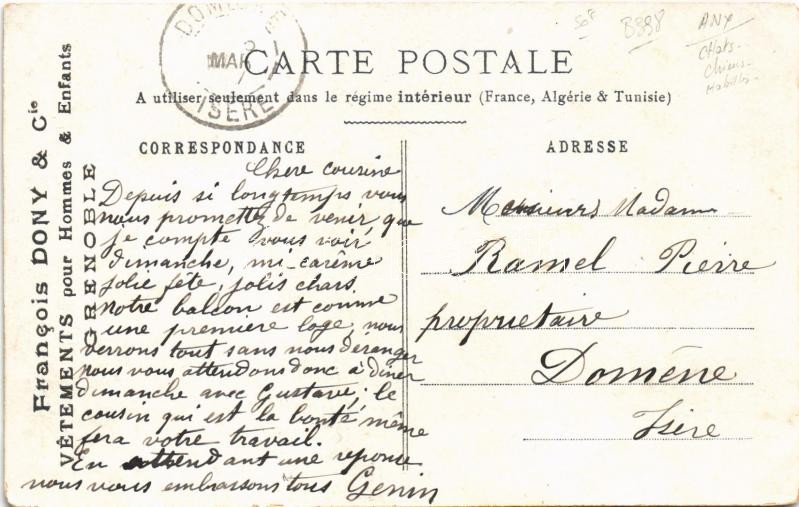 François DONY & Cie
VÊTEMENTS pour Hommes & Enfants
GRENOBLE
MAR
ISÈRE
50F
ANX
Chats
Chiens
CARTE POSTALE
A utiliser seulement dans le régime intérieur (France, Algérie & Tunisie)
CORRESPONDANCE
Chere cousine
Depuis si longtemps vous
nous promettez de venir, que
je compte vous voir
dimanche, mi-carême
jolie fête, jolis chars.
Notre balcon est comme
une premiere loge, nous
verrons tout sans nous deranger
nous vous attendons donc à diner
dimanche avec Gustave; le
cousin qui est la bonté même
fera votre travail.
En attendant une reponse
nous vous embrassons tous Genin
ADRESSE
Messieurs Madame
Ramel Pierre
propriétaire
Domène
Isère